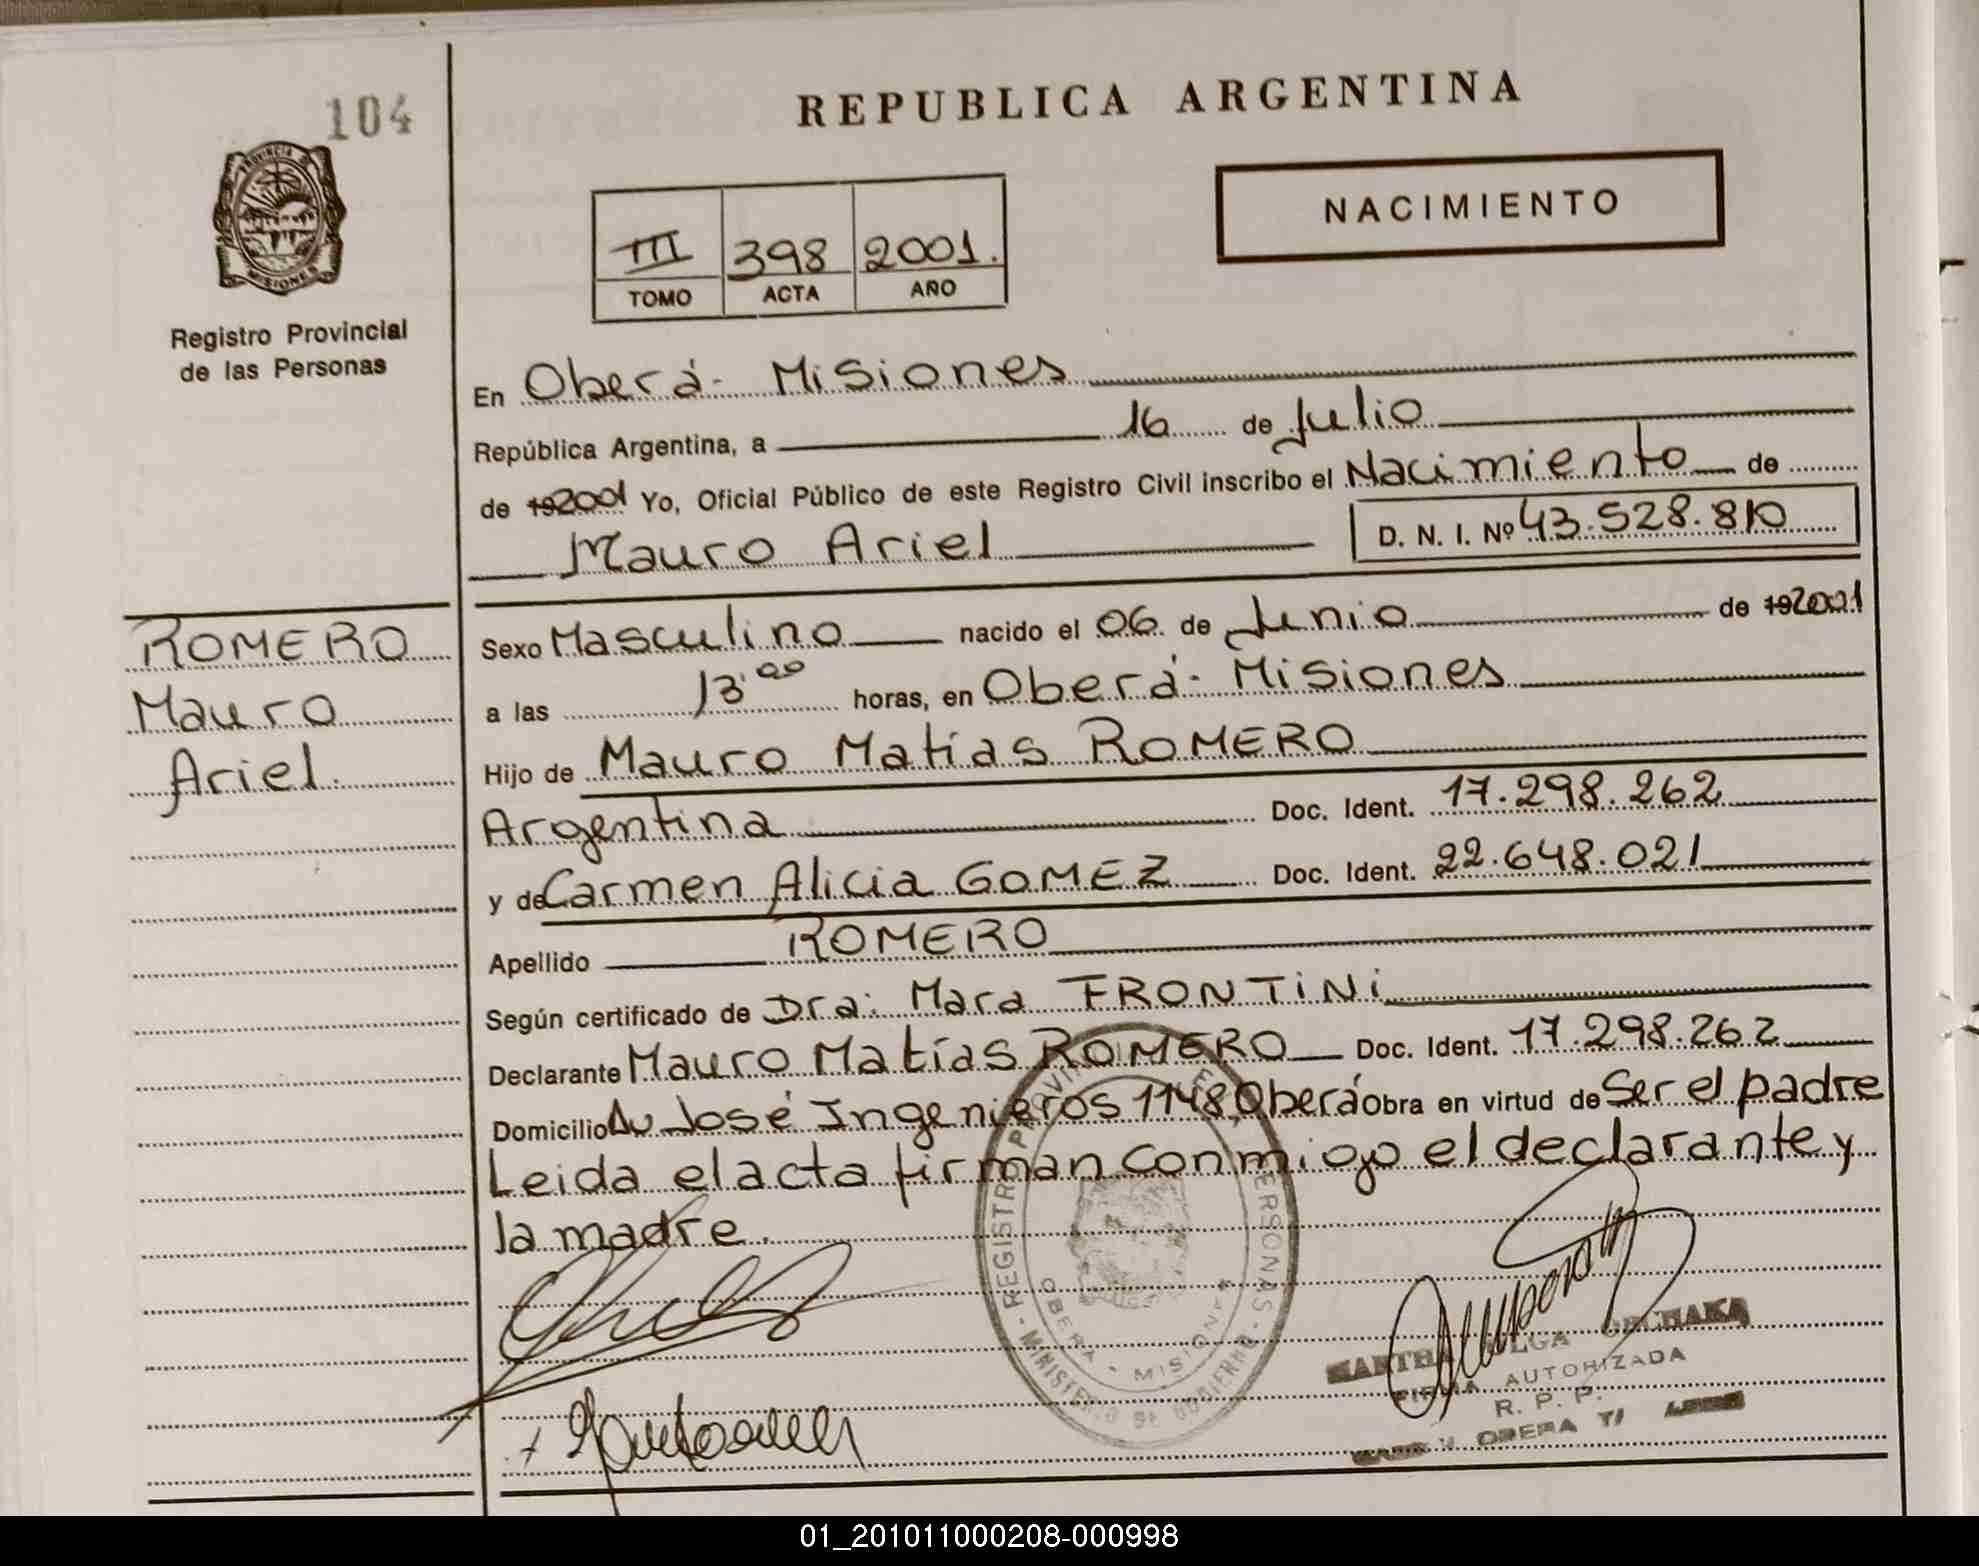 104
REPUBLICA ARGENTINA
PROVINCIA DE
MISIONES
Registro Provincial
de las Personas
NACIMIENTO
III 398 2001.
TOMO ACTA AÑO
En Oberá - Misiones
República Argentina, a 16 de Julio
de 192001 Yo, Oficial Público de este Registro Civil inscribo el Nacimiento de
Mauro Ariel D. N. I. Nº 43.528.810
ROMERO
Mauro
Ariel.
Sexo Masculino nacido el 06 de Junio de 192001
a las 13:00 horas, en Oberá - Misiones
Hijo de Mauro Matías ROMERO
Argentina Doc. Ident. 17.298.262
y de Carmen Alicia GOMEZ Doc. Ident. 22.648.021
Apellido ROMERO
Según certificado de Dra: Mara FRONTINI
Declarante Mauro Matías ROMERO Doc. Ident. 17.298.262
Domicilio Av José Ingenieros 1148 Oberá Obra en virtud de Ser el padre
Leida el acta firman conmigo el declarante y
la madre.
REGISTRO PROVINCIAL PERSONAS
OBERA - MISIONES
MINISTERIO DE GOBIERNO
MARTHA OLGA
FIRMA AUTORIZADA
R. P. P.
OBERA
01_201011000208-000998